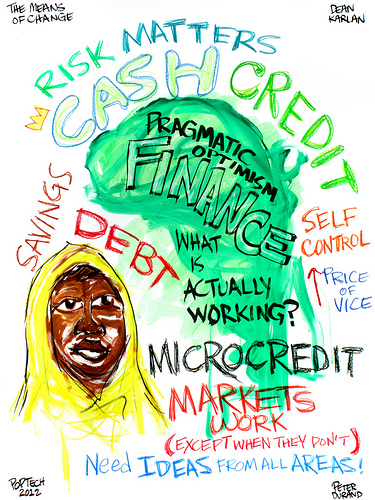 THE MEANS
OF CHANGE
DEAN
KARLAN
RISK MATTERS
CASH CREDIT
PRAGMATIC
OPTIMISM
FINANCE
SAVINGS
DEBT
WHAT
IS
ACTUALLY
WORKING?
SELF
CONTROL
↑ PRICE
OF
VICE
MICROCREDIT
MARKETS
WORK
(EXCEPT WHEN THEY DON'T)
Need IDEAS FROM ALL AREAS!
POPTECH
2022
PETER
DURAND